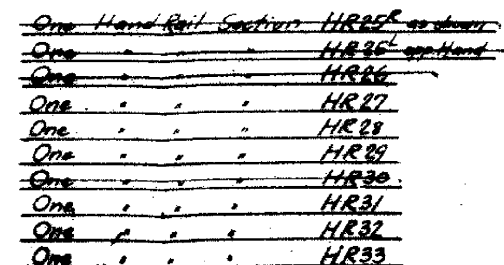 One Hand Rail Section HR25R as drawn
One " " " HR25L opp Hand
One " " " HR26
One " " " HR27
One " " " HR28
One " " " HR29
One " " " HR30
One " " " HR31
One " " " HR32
One " " " HR33